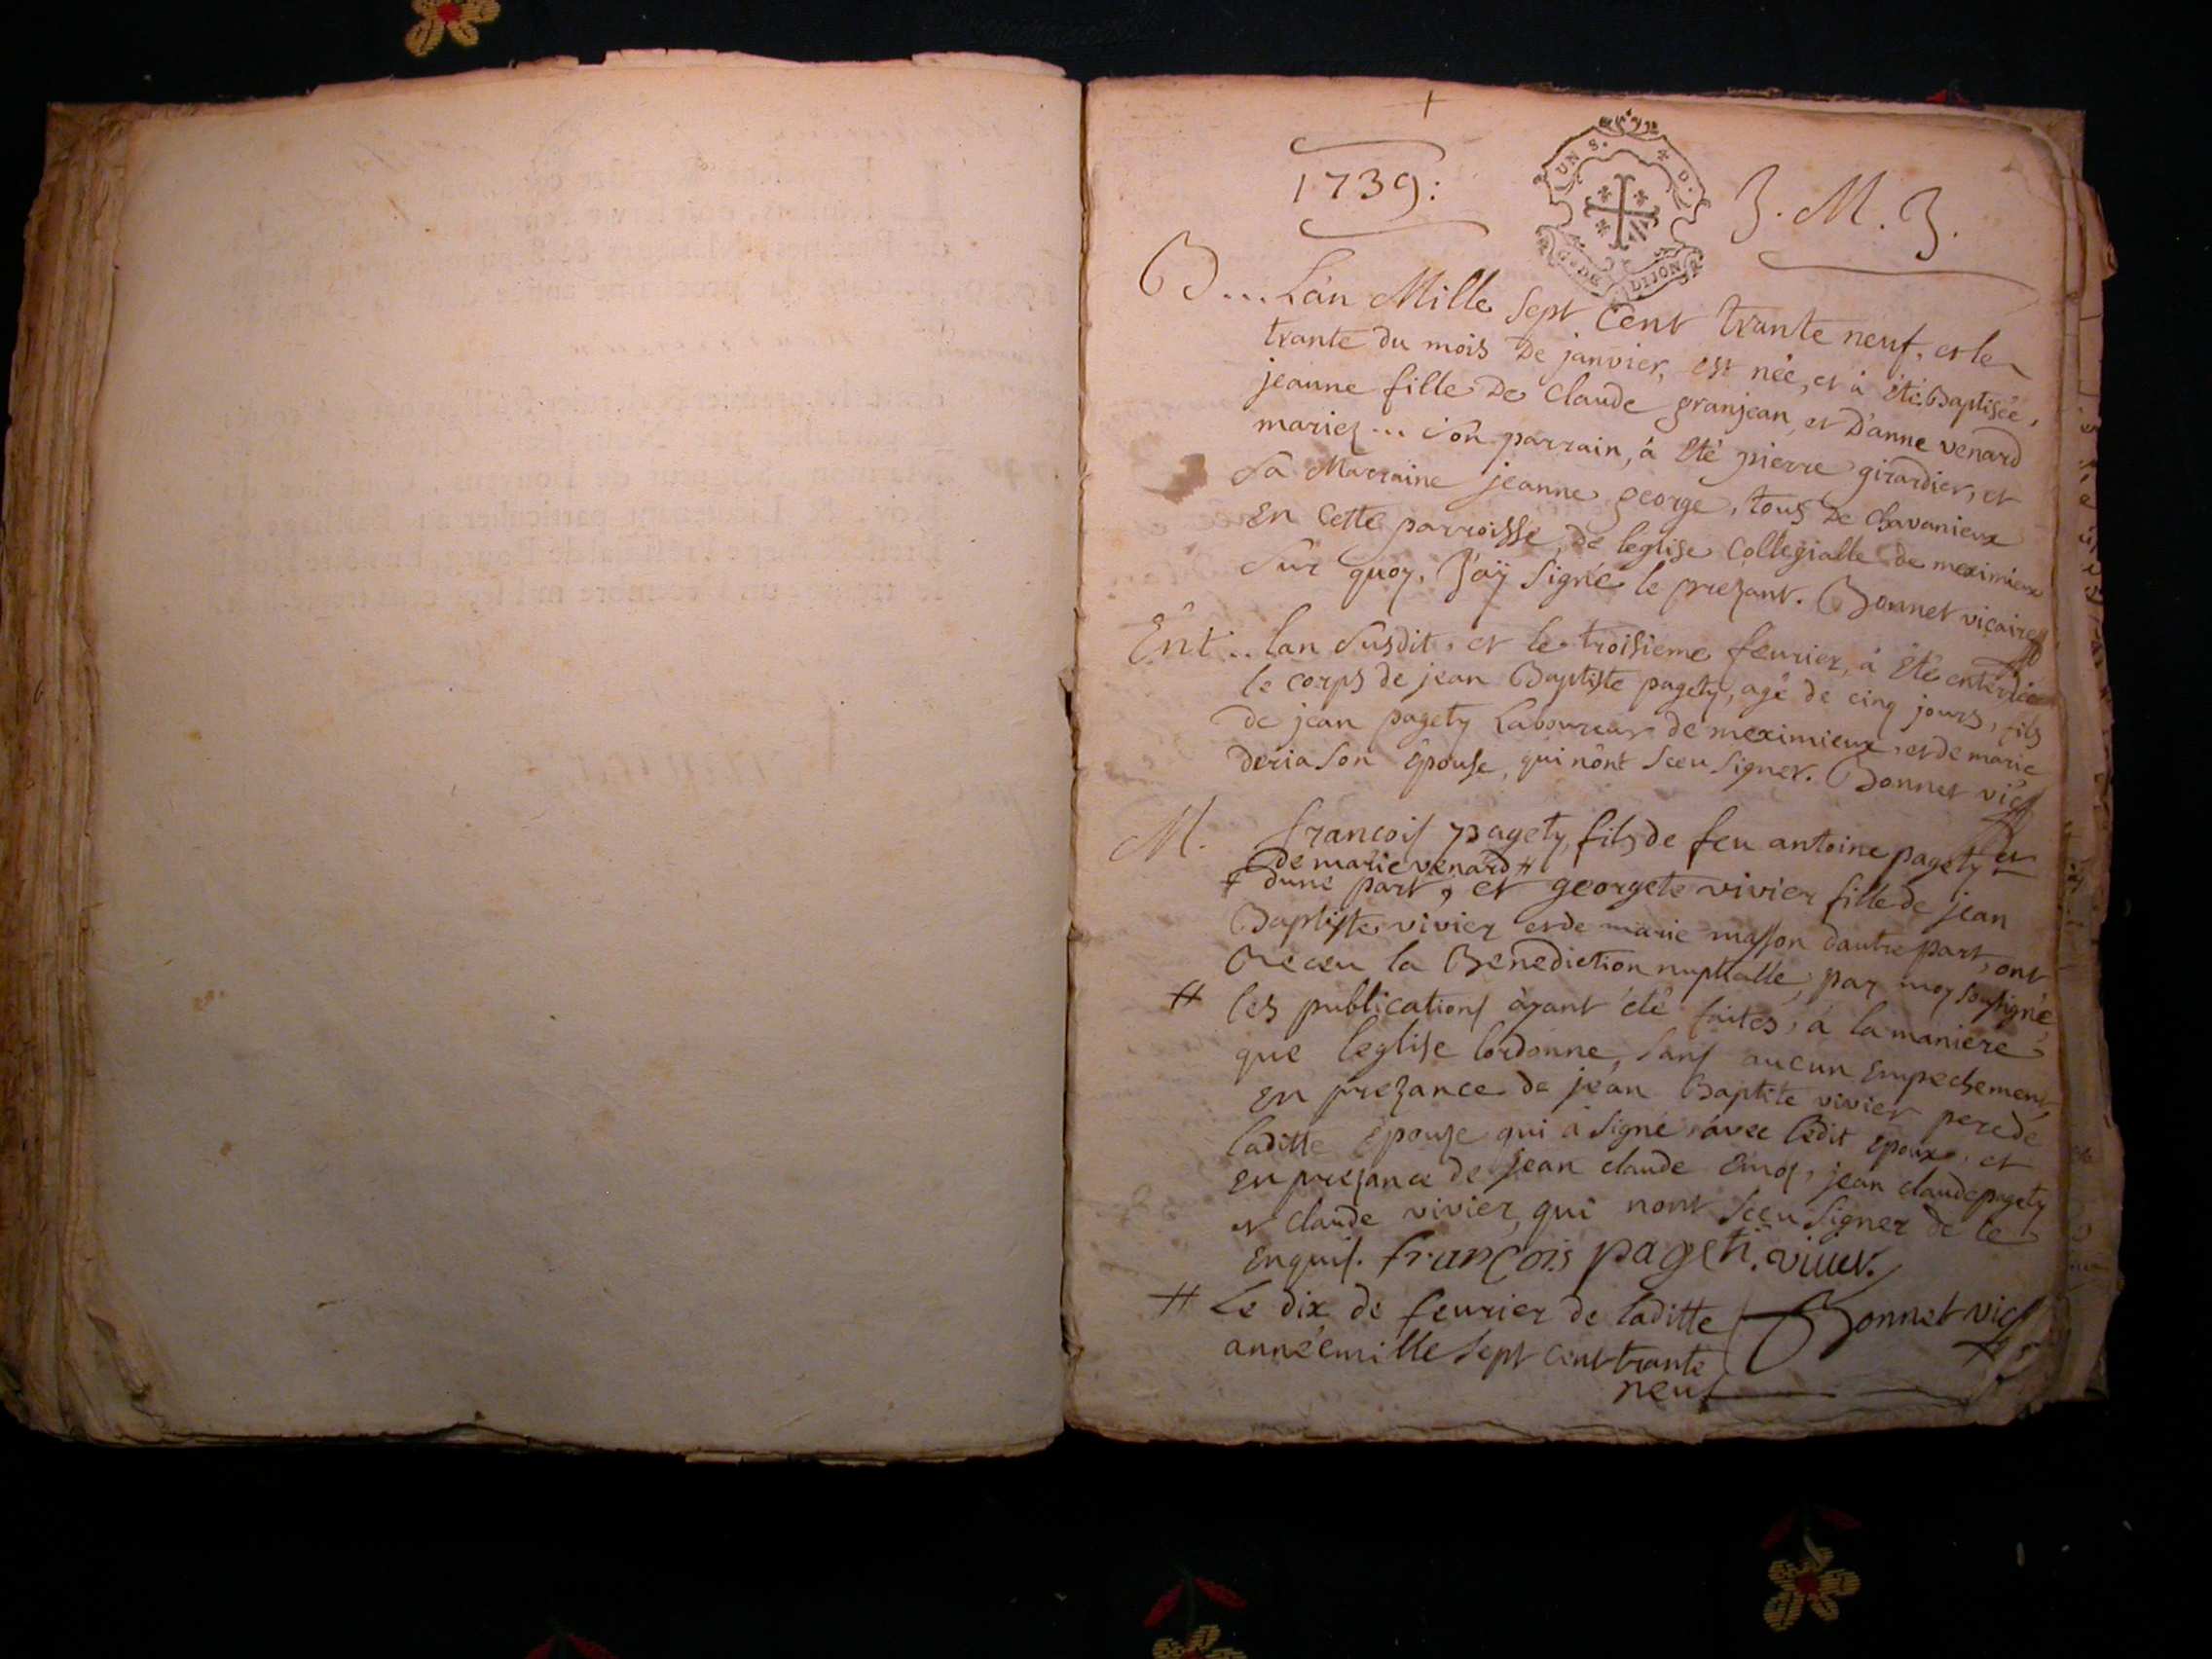 1739:
UN S. 4 D.
G. DE DIJON
J. M. J.
B... L'an Mille sept Cent trante neuf, et le
trante du mois De janvier, est née, et à été Baptisée,
jeanne fille De Claude granjean, et D'anne venard
mariez... son parrain, à été pierre girardier, et
sa Marraine jeanne george, tous De chavanieux
En cette parroisse, de l'eglise Collegialle de meximieux
sur quoy, J'aÿ signé le prezant. Bonnet vicaire
Ent... lan susdit, et le troisieme feurier, à été enterré
le corps de jean Baptiste pagety, agé de cinq jours, fils
de jean pagety Laboureur de meximieux, et de marie
deria son Epouse, qui nont sceu signer. Bonnet vic
M. francois pagety, fils de feu antoine pagety et
de marie venard #
dune part, et georgete vivier fille de jean
Baptiste vivier et de marie masson dautre part, ont
Receu la Benediction nuptialle, par moy soussigné
# les publications ayant été faites, à la maniere
que l'eglise lordonne, sans aucun Empechement
En prezance de jean Baptite vivier pere de
laditte Epouze qui à signé avec ledit epoux, et
En prezance de jean claude jean claude pagety
et claude vivier, qui nont sceu signer de ce
Enquis. françois pageti. viuier.
# Le dix de feurier de laditte
année mille sept cent trante
neuf
Bonnet vic